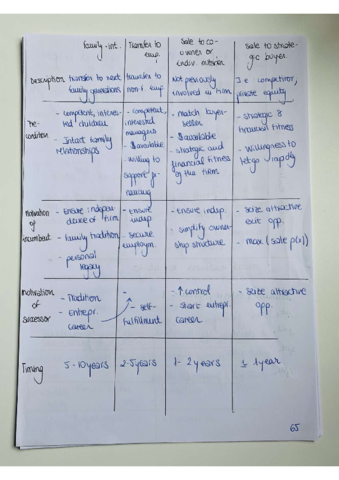 family-int.
Transfer to
emp.
Sale to co-
owner or
indiv. outsider
Sale to strate-
gic buyer
Description
transfer to next
family generations
transfer to
non-f emp.
Not previously
involved in firm
I.e. competitor,
private equity
Pre-
condition
- competent, interes-
ted children
- Intact family
relationships
- competent,
interested
managers
- $ available
- willing to
support
- match buyer-
- $ available
- strategic and
financial fitness
of the firm
- strategic &
financial fitness
- Willingness to
let go rapidly
Motivation
of
incumbent
- Ensure indepen-
dence of firm
- family tradition
- personal
legacy
- Ensure
indep.
- secure
employm.
- ensure indep.
- simplify owner-
ship structure
- Seize attractive
exit opp.
- max (sale p(x))
Motivation
of
successor
- Tradition
- Entrepr.
career
- self-
fulfillment
- ↑ control
- start entrepr.
career
- seize attractive
opp.
Timing
5-10 years
2-5 years
1-2 years
1 year
65